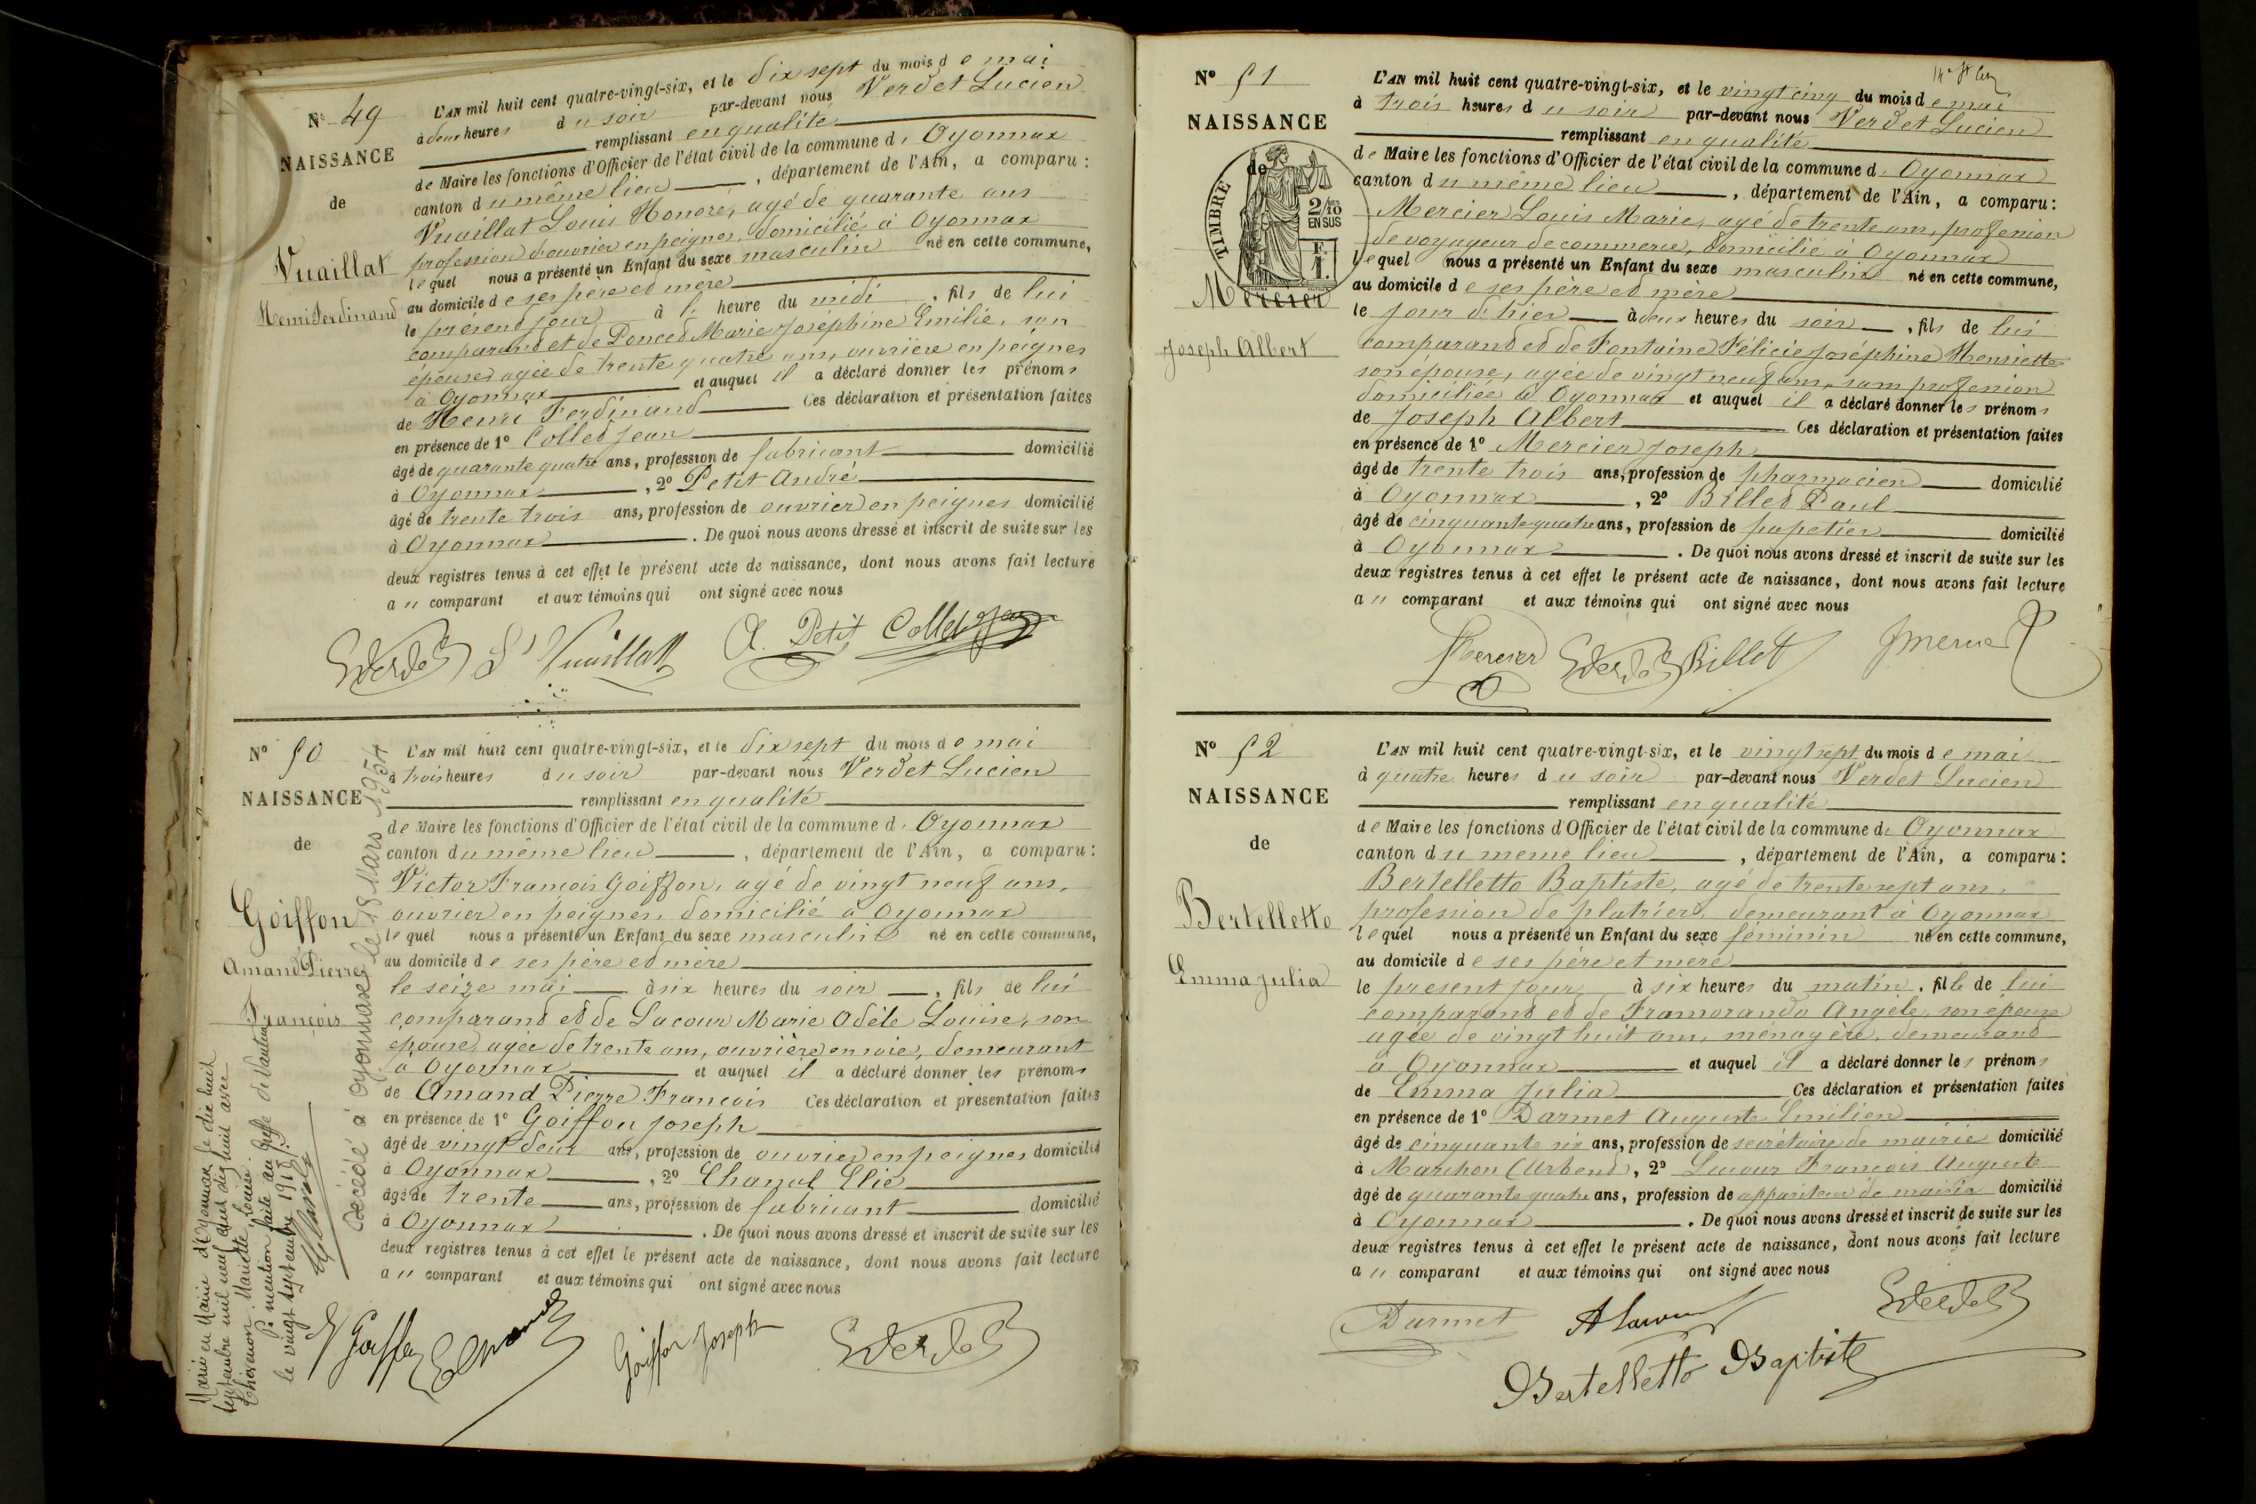 N° 49
NAISSANCE
de
Vuaillat
Henri Ferdinand
L'AN mil huit cent quatre-vingt-six, et le dix sept du mois de mai
à deux heures du soir par-devant nous Verdet Lucien
remplissant en qualité
de Maire les fonctions d'Officier de l'état civil de la commune d' Oyonnax
canton du même lieu, département de l'Ain, a comparu :
Vuaillat Louis Honoré, agé de quarante ans
profession d'ouvrier en peignes, domicilié à Oyonnax
lequel nous a présenté un Enfant du sexe masculin né en cette commune,
au domicile de ses père et mère
le présent jour à l' heure du midi, fils de lui
comparant et de Poncet Marie Joséphine Emilie, son
épouse, agée de trente quatre ans, ouvrière en peignes
à Oyonnax et auquel il a déclaré donner les prénoms
de Henri Ferdinand Ces déclaration et présentation faites
en présence de 1° Collet Jean
âgé de quarante quatre ans, profession de fabricant domicilié
à Oyonnax, 2° Petit André
âgé de trente trois ans, profession de ouvrier en peignes domicilié
à Oyonnax. De quoi nous avons dressé et inscrit de suite sur les
deux registres tenus à cet effet le présent acte de naissance, dont nous avons fait lecture
a u comparant et aux témoins qui ont signé avec nous
Verdet Ls Vuaillat A. Petit Collet Jean
N° 50
NAISSANCE
de
Goiffon
Amand Pierre
François
L'AN mil huit cent quatre-vingt-six, et le dix sept du mois de mai
à trois heures du soir par-devant nous Verdet Lucien
remplissant en qualité
de Maire les fonctions d'Officier de l'état civil de la commune d' Oyonnax
canton du même lieu, département de l'Ain, a comparu :
Victor François Goiffon, agé de vingt neuf ans,
ouvrier en peignes, domicilié à Oyonnax
lequel nous a présenté un Enfant du sexe masculin né en cette commune,
au domicile de ses père et mère
le seize mai à six heures du soir, fils de lui
comparant et de Lacour Marie Odèle Louise, son
épouse, agée de trente ans, ouvrière en soie, demeurant
à Oyonnax et auquel il a déclaré donner les prénoms
de Amand Pierre François Ces déclaration et présentation faites
en présence de 1° Goiffon Joseph
âgé de vingt deux ans, profession de ouvrier en peignes domicilié
à Oyonnax, 2° Chanal Elie
âgé de trente ans, profession de fabricant domicilié
à Oyonnax. De quoi nous avons dressé et inscrit de suite sur les
deux registres tenus à cet effet le présent acte de naissance, dont nous avons fait lecture
a u comparant et aux témoins qui ont signé avec nous
V Goiffon Goiffon Joseph Verdet
Marié en Mairie d'Oyonnax le dix huit
septembre mil neuf cent dix huit avec
Thévenon Mariette, Louise.
Pr mention faite au greffe de Nantua
le vingt septembre 1918.
Décédé à Oyonnax le 18 Mars 1954
N° 51
NAISSANCE
de
TIMBRE
2/10
EN SUS
F.
1.
Mercier
Joseph Albert
L'AN mil huit cent quatre-vingt-six, et le vingt cinq du mois de mai
à trois heures du soir par-devant nous Verdet Lucien
remplissant en qualité
de Maire les fonctions d'Officier de l'état civil de la commune d' Oyonnax
canton du même lieu, département de l'Ain, a comparu :
Mercier Louis Marie, agé de trente ans, profession
de voyageur de commerce, domicilié à Oyonnax
lequel nous a présenté un Enfant du sexe masculin né en cette commune,
au domicile de ses père et mère
le jour d'hier à deux heures du soir, fils de lui
comparant et de Fontaine Félicie Joséphine Henriette
son épouse, agée de vingt neuf ans, sans profession
domiciliée à Oyonnax et auquel il a déclaré donner les prénoms
de Joseph Albert Ces déclaration et présentation faites
en présence de 1° Mercier Joseph
âgé de trente trois ans, profession de pharmacien domicilié
à Oyonnax, 2° Billet Paul
âgé de cinquante quatre ans, profession de papetier domicilié
à Oyonnax. De quoi nous avons dressé et inscrit de suite sur les
deux registres tenus à cet effet le présent acte de naissance, dont nous avons fait lecture
a u comparant et aux témoins qui ont signé avec nous
Mercier Verdet Billet J Mercier
N° 52
NAISSANCE
de
Bertelletto
Emma Julia
L'AN mil huit cent quatre-vingt-six, et le vingt sept du mois de mai
à quatre heures du soir par-devant nous Verdet Lucien
remplissant en qualité
de Maire les fonctions d'Officier de l'état civil de la commune d' Oyonnax
canton du meme lieu, département de l'Ain, a comparu :
Bertelletto Baptiste, agé de trente sept ans,
profession de platrier, demeurant à Oyonnax
lequel nous a présenté un Enfant du sexe féminin né en cette commune,
au domicile de ses père et mère
le present jour à six heures du matin, fille de lui
comparant et de Framorando Angèle, son épouse
agée de vingt huit ans, ménagère, demeurant
à Oyonnax et auquel il a déclaré donner les prénoms
de Emma Julia Ces déclaration et présentation faites
en présence de 1° Darmet Auguste Emilien
âgé de cinquante six ans, profession de secrétaire de mairie domicilié
à Marchon (Arbent), 2° Lacour François Auguste
âgé de quarante quatre ans, profession de appariteur de mairie domicilié
à Oyonnax. De quoi nous avons dressé et inscrit de suite sur les
deux registres tenus à cet effet le présent acte de naissance, dont nous avons fait lecture
a u comparant et aux témoins qui ont signé avec nous
Darmet A Lacour Verdet
Bertelletto Baptiste